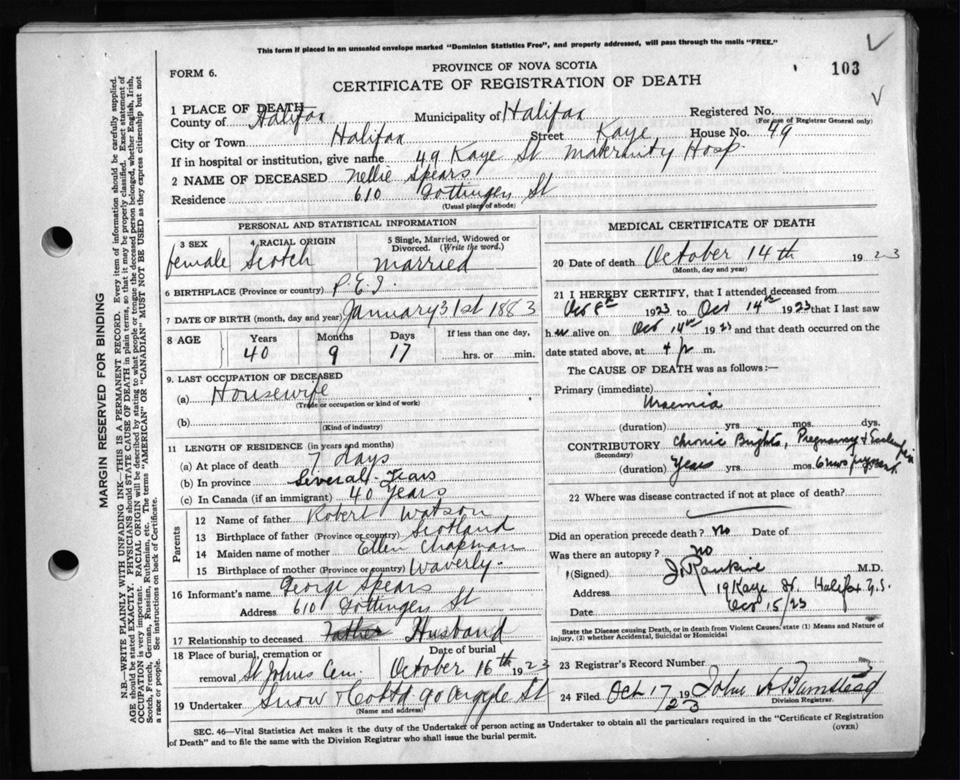 This form if placed in an unsealed envelope marked "Dominion Statistics Free", and properly addressed, will pass through the mails "FREE."
PROVINCE OF NOVA SCOTIA
FORM 6.
CERTIFICATE OF REGISTRATION OF DEATH
103
1 PLACE OF DEATH
County of Halifax Municipality of Halifax Registered No.
(For use of Registrar General only)
City or Town Halifax Street Kaye House No. 49
If in hospital or institution, give name 49 Kaye St Maternity Hosp.
2 NAME OF DECEASED Nellie Spears
Residence 610 Gottingen St
(Usual place of abode)
PERSONAL AND STATISTICAL INFORMATION
3 SEX
female
4 RACIAL ORIGIN
Scotch
5 Single, Married, Widowed or Divorced. (Write the word.)
married
6 BIRTHPLACE (Province or country) P.E.I.
7 DATE OF BIRTH (month, day and year) January 31st 1883
8 AGE Years Months Days If less than one day,
40 9 17 hrs. or min.
9. LAST OCCUPATION OF DECEASED
(a) Housewife
(Trade or occupation or kind of work)
(b)
(Kind of industry)
11 LENGTH OF RESIDENCE (in years and months)
(a) At place of death 7 days
(b) In province Several Years
(c) In Canada (if an immigrant) 40 Years
Parents
12 Name of father Robert Watson
13 Birthplace of father (Province or country) Scotland
14 Maiden name of mother Ellen Chapman
15 Birthplace of mother (Province or country) Waverly
16 Informant's name George Spears
Address 610 Gottingen St
17 Relationship to deceased Father Husband
18 Place of burial, cremation or removal St Johns Cem. Date of burial October 16th 1923
19 Undertaker Snow & Co Ltd 90 Argyle St
(Name and address)
MEDICAL CERTIFICATE OF DEATH
20 Date of death October 14th 1923
(Month, day and year)
21 I HEREBY CERTIFY, that I attended deceased from
Oct 8th 1923 to Oct 14th 1923 that I last saw
her alive on Oct 14th 1923 and that death occurred on the
date stated above, at 4 p m.
The CAUSE OF DEATH was as follows:—
Primary (immediate)
Uraemia
(duration) yrs. mos. dys.
CONTRIBUTORY Chronic Brights, Pregnancy &
(Secondary)
(duration) Years yrs. mos. 6
22 Where was disease contracted if not at place of death?
Did an operation precede death? No Date of
Was there an autopsy? no
(Signed) Rankine M.D.
Address 19 Kaye St. Halifax N.S.
Date Oct 15/23
State the Disease causing Death, or in death from Violent Causes, state (1) Means and Nature of Injury, (2) whether Accidental, Suicidal or Homicidal
23 Registrar's Record Number
24 Filed Oct 17 1923 John A Bumstead
Division Registrar.
SEC. 46—Vital Statistics Act makes it the duty of the Undertaker or person acting as Undertaker to obtain all the particulars required in the "Certificate of Registration
of Death" and to file the same with the Division Registrar who shall issue the burial permit.
(OVER)
MARGIN RESERVED FOR BINDING
N.B.—WRITE PLAINLY WITH UNFADING INK—THIS IS A PERMANENT RECORD. Every item of information should be carefully supplied.
AGE should be stated EXACTLY. PHYSICIANS should STATE CAUSE OF DEATH in plain terms, so that it may be properly classified. Exact statement of
OCCUPATION is very important. RACIAL ORIGIN will be described by stating to what people or tongue the deceased person belonged, whether English, Irish,
Scotch, French, German, Russian, Ruthenian, etc. The terms "AMERICAN" or "CANADIAN" MUST NOT BE USED as they express citizenship but not
a race or people. See instructions on back of Certificate.